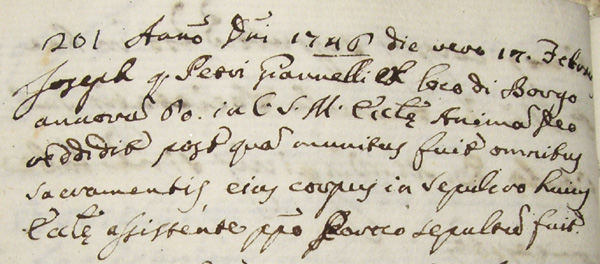 201 Anno Dni 1746 die vero 17. Febru
Joseph q. Petri Giannelli ex loco di Borgo
annorũ 60. in C. S. M. Eclę Animã Deo
reddidit post quã munitus fuit omnibus
sacramentis, eius corpus in sepulcro huius
Eclę assistente ppõ Parroco sepultũ fuit.